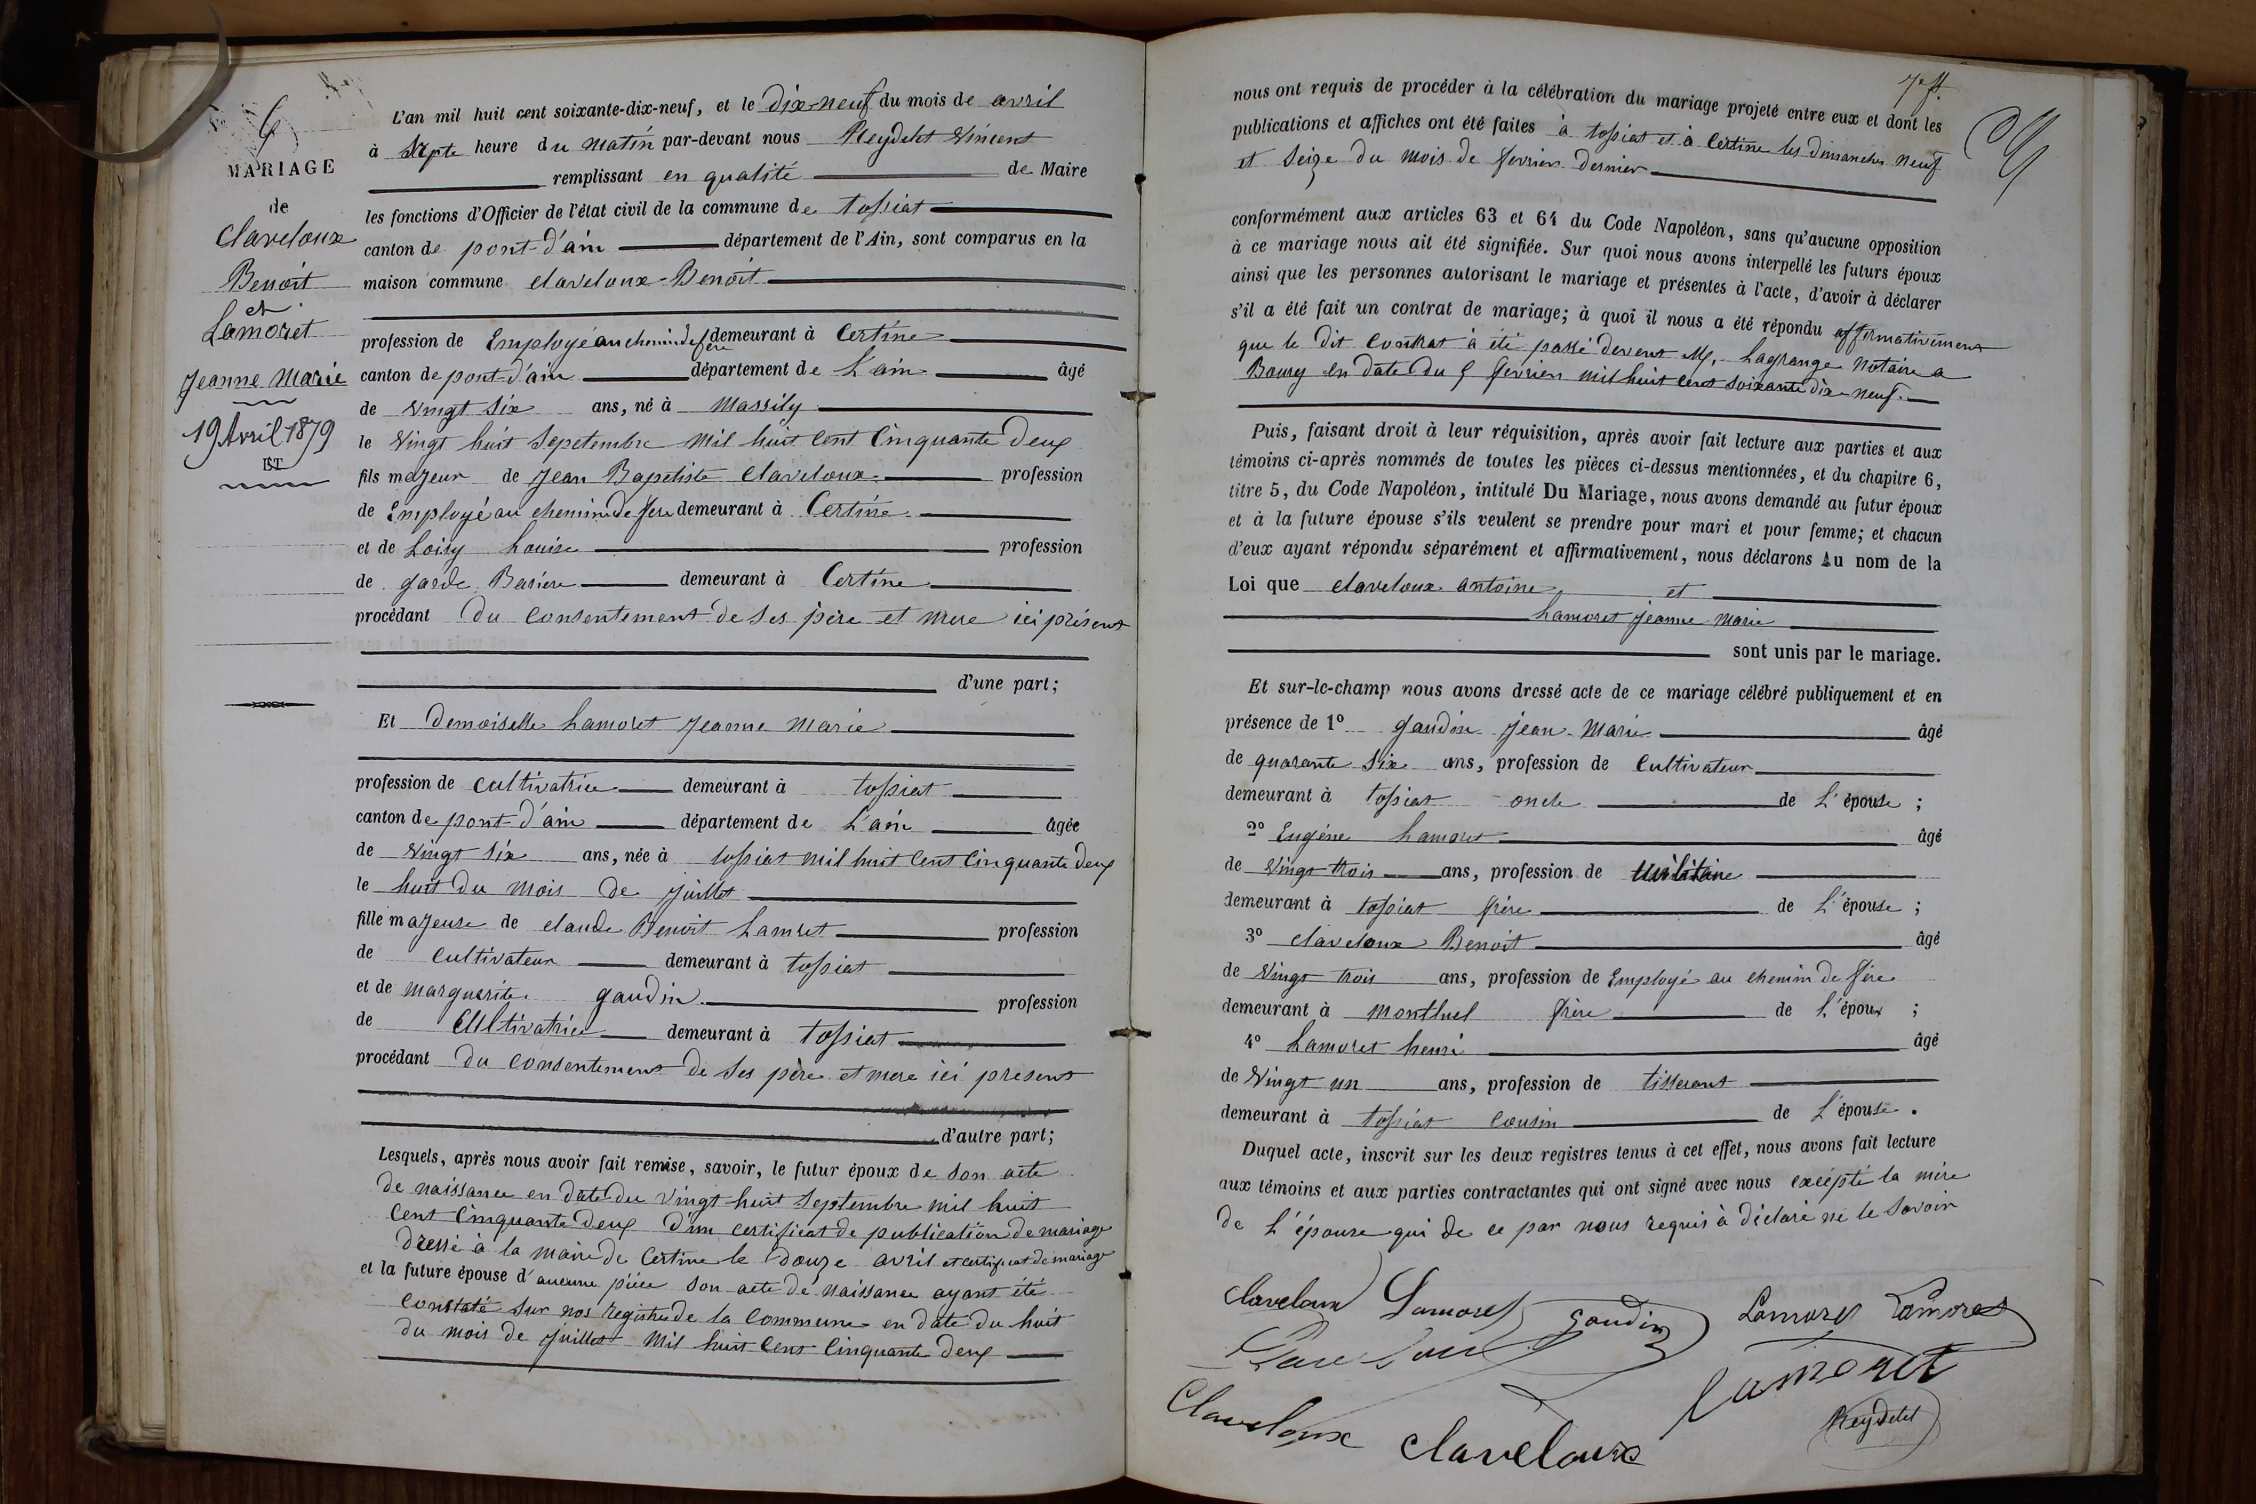 6
MARIAGE
de
Claveloux
Benoit
et
Lamoret
Jeanne Marie
19 Avril 1879
ET
L'an mil huit cent soixante-dix-neuf, et le dix-neuf du mois de avril
à sept heure du matin par-devant nous Reydelet Vincent
remplissant en qualité de Maire
les fonctions d'Officier de l'état civil de la commune de tossiat
canton de pont-d'ain département de l'Ain, sont comparus en la
maison commune claveloux-Benoit
profession de Employé au chemin de fere demeurant à Certine
canton de pont-d'ain département de L'ain âgé
de vingt six ans, né à Massily
le vingt huit sepetembre mil huit cent cinquante deux
fils majeur de Jean Bapetiste claveloux profession
de Employé au chemin de fere demeurant à Certine
et de Loisy Louise profession
de garde Bariere demeurant à Certine
procédant du consentement de ses père et mere ici présent
d'une part;
Et demoiselle Lamoret Jeanne Marie
profession de cultivatrice demeurant à tossiat
canton de pont-d'ain département de L'ain âgée
de vingt six ans, née à tossiat mil huit cent cinquante deux
le huit du mois de juillet
fille majeure de claude Benoit Lamret profession
de cultivateur demeurant à tossiat
et de marguerite gaudin profession
de cultivatrice demeurant à tossiat
procédant du consentement de ses père et mere ici present
d'autre part;
Lesquels, après nous avoir fait remise, savoir, le futur époux de son acte
de naissance en date du vingt-huit septembre mil huit
cent cinquante deux d'un certificat de publication de mariage
dressé à la mairie de Certine le douze avril et certificat de mariage
et la future épouse d'aucune pièce son acte de naissance ayant été
constaté sur nos registre de la commune en date du huit
du mois de juillet mil huit cent cinquante deux
nous ont requis de procéder à la célébration du mariage projeté entre eux et dont les
publications et affiches ont été faites à tossiat et à Certine les dimanches neuf
et seize du mois de fevrier dernier
conformément aux articles 63 et 64 du Code Napoléon, sans qu'aucune opposition
à ce mariage nous ait été signifiée. Sur quoi nous avons interpellé les futurs époux
ainsi que les personnes autorisant le mariage et présentes à l'acte, d'avoir à déclarer
s'il a été fait un contrat de mariage; à quoi il nous a été répondu affirmativement
que le dit contrat à été passé devent M. Lagrange Notaire a
Bourg en date du 9 fevrier mil huit cent soixante dix-neuf.
Puis, faisant droit à leur réquisition, après avoir fait lecture aux parties et aux
témoins ci-après nommés de toutes les pièces ci-dessus mentionnées, et du chapitre 6,
titre 5, du Code Napoléon, intitulé Du Mariage, nous avons demandé au futur époux
et à la future épouse s'ils veulent se prendre pour mari et pour femme; et chacun
d'eux ayant répondu séparément et affirmativement, nous déclarons Au nom de la
Loi que claveloux antoine et
Lamoret jeanne marie
sont unis par le mariage.
Et sur-le-champ nous avons dressé acte de ce mariage célébré publiquement et en
présence de 1º gaudin jean-Marie âgé
de quarante six ans, profession de cultivateur
demeurant à tossiat oncle de L'épouse ;
2º Eugéne Lamoret âgé
de vingt trois ans, profession de militaire
demeurant à tossiat frére de L'épouse ;
3º claveloux Benoit âgé
de vingt trois ans, profession de Employé au chemin de fere
demeurant à montluel frère de L'époux ;
4º Lamoret henri âgé
de vingt un ans, profession de tisserant
demeurant à tossiat cousin de L'épouse .
Duquel acte, inscrit sur les deux registres tenus à cet effet, nous avons fait lecture
aux témoins et aux parties contractantes qui ont signé avec nous excépté la mère
de L'épouse qui de ce par nous requis à déclaré ne le savoir
claveloux Lamoret gaudin Lamoret Lamoret
Claveloux claveloux Lamoret
Reydelet